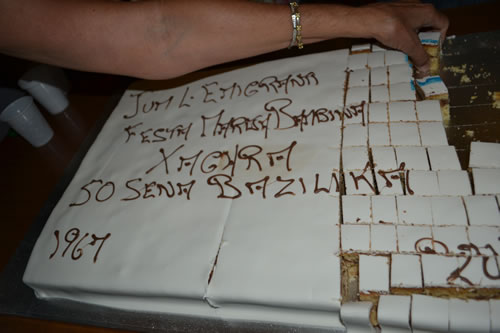 JUM L-EMIGRANT
FESTA MARIJA BAMBINA
XAGHRA
50 SENA BAZILIKA
1967